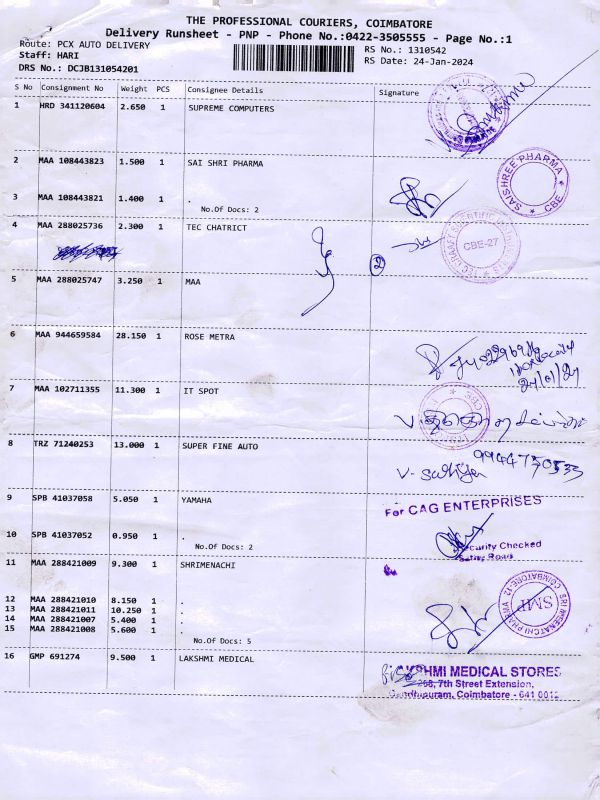 THE PROFESSIONAL COURIERS, COIMBATORE
Delivery Runsheet - PNP - Phone No.:0422-3505555 - Page No.:1
Route: PCX AUTO DELIVERY
RS No.: 1310542
Staff: HARI
RS Date: 24-Jan-2024
DRS No.: DCJB131054201
S No Consignment No Weight PCS Consignee Details Signature
1 HRD 341120604 2.650 1 SUPREME COMPUTERS
2 MAA 108443823 1.500 1 SAI SHRI PHARMA
SAISHREE PHARMA CBE
3 MAA 108443821 1.400 1 .
No.Of Docs: 2
4 MAA 288025736 2.300 1 TEC CHATRICT
CBE-27
2
5 MAA 288025747 3.250 1 MAA
6 MAA 944659584 28.150 1 ROSE METRA
7 MAA 102711355 11.300 1 IT SPOT
8 TRZ 71240253 13.000 1 SUPER FINE AUTO
9944730533
9 SPB 41037058 5.050 1 YAMAHA
For CAG ENTERPRISES
10 SPB 41037052 0.950 1 .
No.Of Docs: 2
Security Checked
11 MAA 288421009 9.300 1 SHRIMENACHI
12 MAA 288421010 8.150 1 .
13 MAA 288421011 10.250 1 .
14 MAA 288421007 5.400 1 .
15 MAA 288421008 5.600 1 .
No.Of Docs: 5
SMP
COIMBATORE-12
16 GMP 691274 9.500 1 LAKSHMI MEDICAL
LAKSHMI MEDICAL STORES
268, 7th Street Extension,
Gandhipuram, Coimbatore - 641 0012